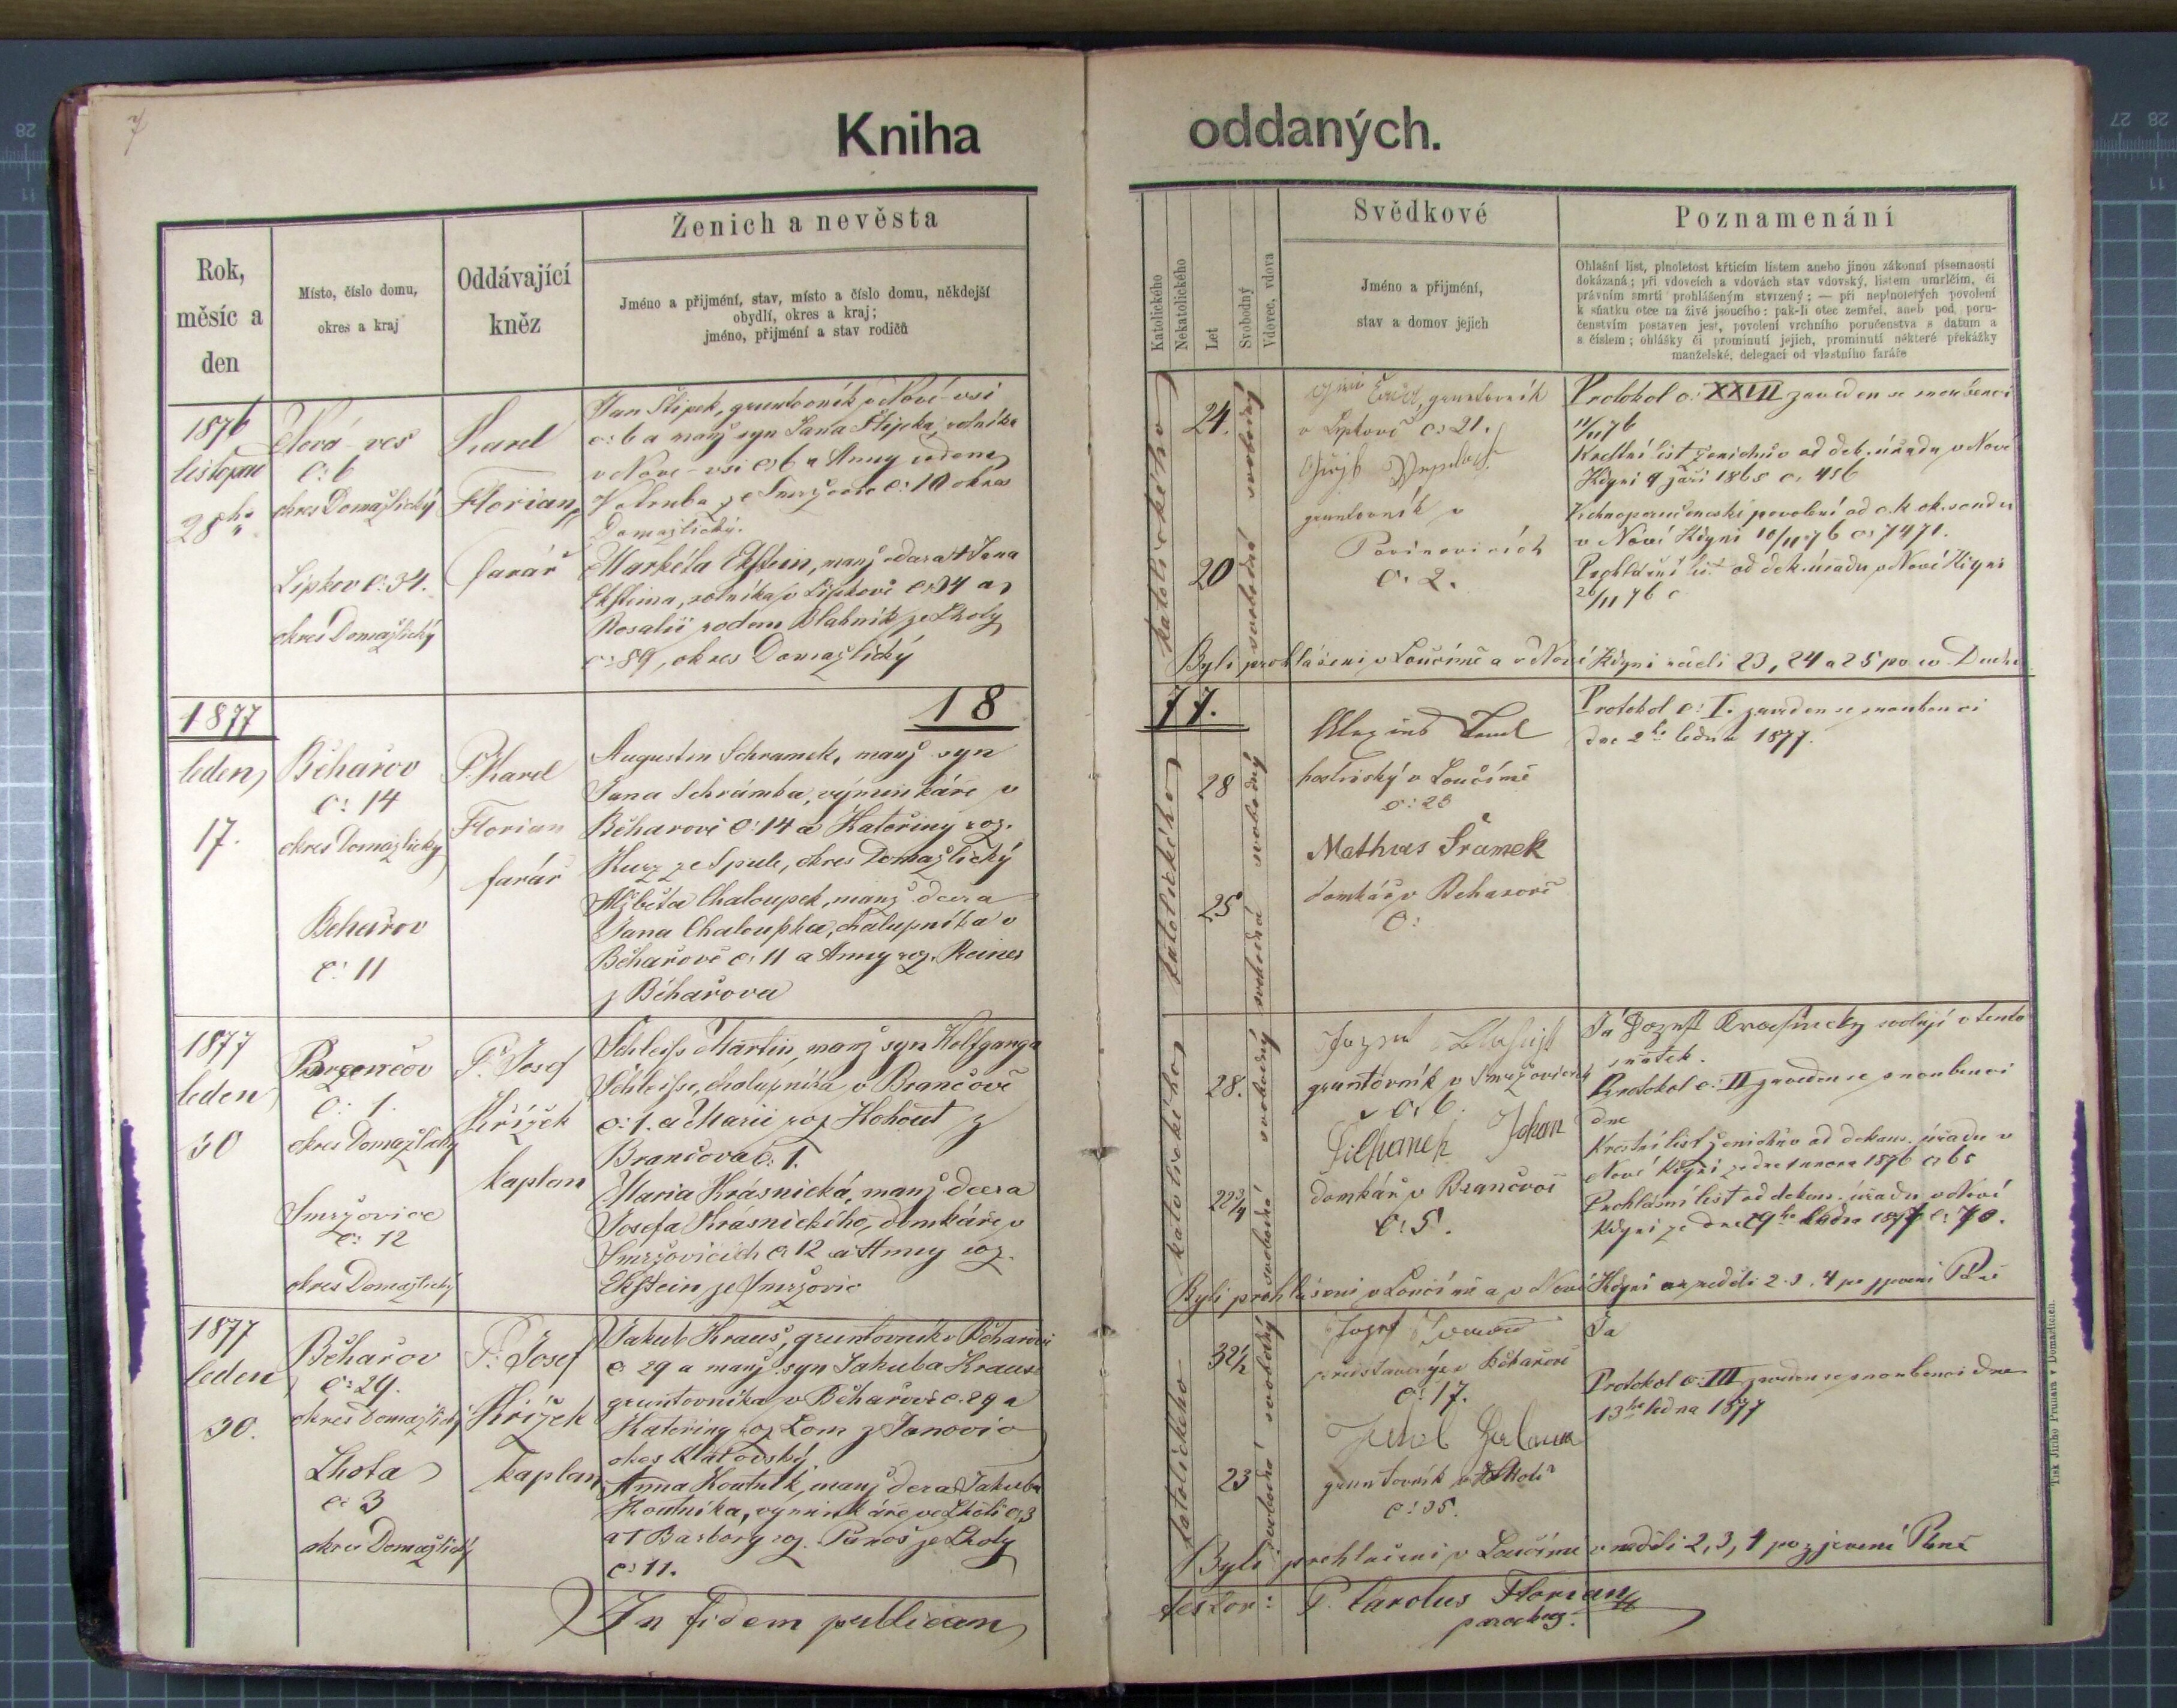 7
Kniha
oddaných.
Rok,
měsíc a
den
Místo, číslo domu,
okres a kraj
Oddávající
kněz
Ženich a nevěsta
Jméno a přijmění, stav, místo a číslo domu, někdejší
obydlí, okres a kraj;
jméno, přijmění a stav rodičů
1876
listopad
28ho
Nová-ves
č: 6
okres Domažlický
Lipkov č. 34.
okres Domažlický
Karel
Florian,
farář
Jan Šlipek, gruntovník v Nové-vsi
č: 6 a manž syn Jana Šlipka, rolníka
v Nové-vsi č: 6 a Anny rodem
ze Smržovic č: 10 okres
Domažlický.
Markéta Ekstein, manž dcera † Jana
Eksteina, rolníka v Lipkově č: 34 a
Rosalii rodem Blahník ze Lhoty
č: 89, okres Domažlický
1877
18
leden,
17.
Běhařov
č: 14
okres Domažlický
Běhařov
č: 11
P. Karel
Florian
farář
Augustin Schramek, manž syn
Jana Schrámka, výminkáře v
Běharově č: 14 a Kateřiny roz.
Kurz ze Spule, okres Domažlický
Alžběta Chaloupek, manž dcera
Jana Chaloupka, chalupníka v
Běhařově č: 11 a Anny roz. Reiner
z Běhařova
1877
leden
30
č: 1.
okres Domažlický
Smržovice
č: 12
okres Domažlický
P. Josef
Křížek
kaplan
Schleiss Martin, manž syn Wolfganga
Schleisse, chalupníka v Brančově
č: 1. a Marie roz Kohout z
Brančova č: 1.
Maria Krásnická, manž dcera
Josefa Krásnického, domkáře v
Smržovicích č: 12 a Anny roz.
Ekstein ze Smržovic
1877
leden
30.
Běhařov
č: 29.
okres Domažlický
Lhota
č: 3
okres Domažlický
P. Josef
Křížek
kaplan
Jakub Kraus, gruntovník v Běharově
č: 29 a manž. syn Jakuba Krause
gruntovníka v Běhařově č. 29 a
Kateřiny roz Lom z Janovic
okres Klatovský
Anna Koutník, manž dcera Jakuba
Koutníka, výminkáře ve Lhotě č: 3
a † Barbory roz. Paroš ze Lhoty
č: 11.
In fidem publicam
Katolického
Nekatolického
Let
Svobodný
Vdovec, vdova
Svědkové
Jméno a přijmění,
stav a domov jejich
Poznamenání
Ohlašní list, plnoletost křticím listem anebo jinou zákonní písemností
dokázaná; při vdovcích a vdovách stav vdovský, listem umrlčím, či
právním smrti prohlášeným stvrzený; — při neplnoletých povolení
k sňatku otce na živě jsoucího: pak-li otec zemřel, aneb pod poru-
čenstvím postaven jest, povolení vrchního poručenstva s datum a
a číslem; ohlášky či prominutí jejich, prominutí některé překážky
manželské, delegací od vlastního faráře
katolického
24.
20
svobodný
svobodná
gruntovník
v Lipkově č: 21.
gruntovník v
č. 2.
Protokol č: XXVII zaveden se snoubenci
11/11 76
Křestní list ženichův od děk. úřadu v Nové
Kdyni 9 září 1865 č. 456
Vrchnoporučenské povolení od c.k. ok. soudu
v Nové Kdyni 10/11 76 č: 7471.
Prohlášní list od děk. úřadu v Nové Kdyni
26/11 76 č
Byli prohlášeni v Loučimě a v Nové Kdyni neděli 23, 24 a 25 po sv Duchu
77.
katolického
28
25
svobodný
svobodná
hostinský v Loučimě
č: 25
Mathias Šramek
domkář v Běharově
č:
Protokol č: I. zaveden se snoubenci
dne 2ho ledna 1877.
katolického
28.
22 3/4
svobodný
svobodná
gruntovník v Smržovicích
č: 6.
Johan
domkář v Brančově
č: 5.
svoluji v tento
sňatek.
Protokol č: II zaveden se snoubenci
dne
Křestní list ženichův od děkans. úřadu v
Nové Kdyni ze dne 1 února 1876 č: 65
Prohlášní list od děkans. úřadu v Nové
Kdyni ze dne 29ho ledna 1877 č: 70.
Byli prohlášeni v Loučimě a v Nové Kdyni v neděli 2. 3. 4 po zjevení Páně
katolického
32 1/2
23
svobodný
svobodná
Běhařově
č: 17.
gruntovník v Lhotě
č: 35.
Já
Protokol č: III zaveden se snoubenci dne
13ho ledna 1877
Byli prohlášeni v Loučimě v neděli 2, 3, 4 po zjevení Páně
testor: P. Carolus Florian
parochus.
Tisk Jiřího Prunara v Domažlicích.